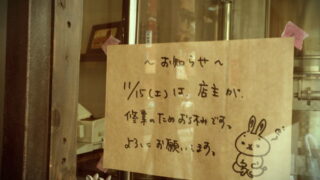 ～お知らせ～
11/15(土)は、店主が、
修業のためお休みです。
よろしくお願いします。